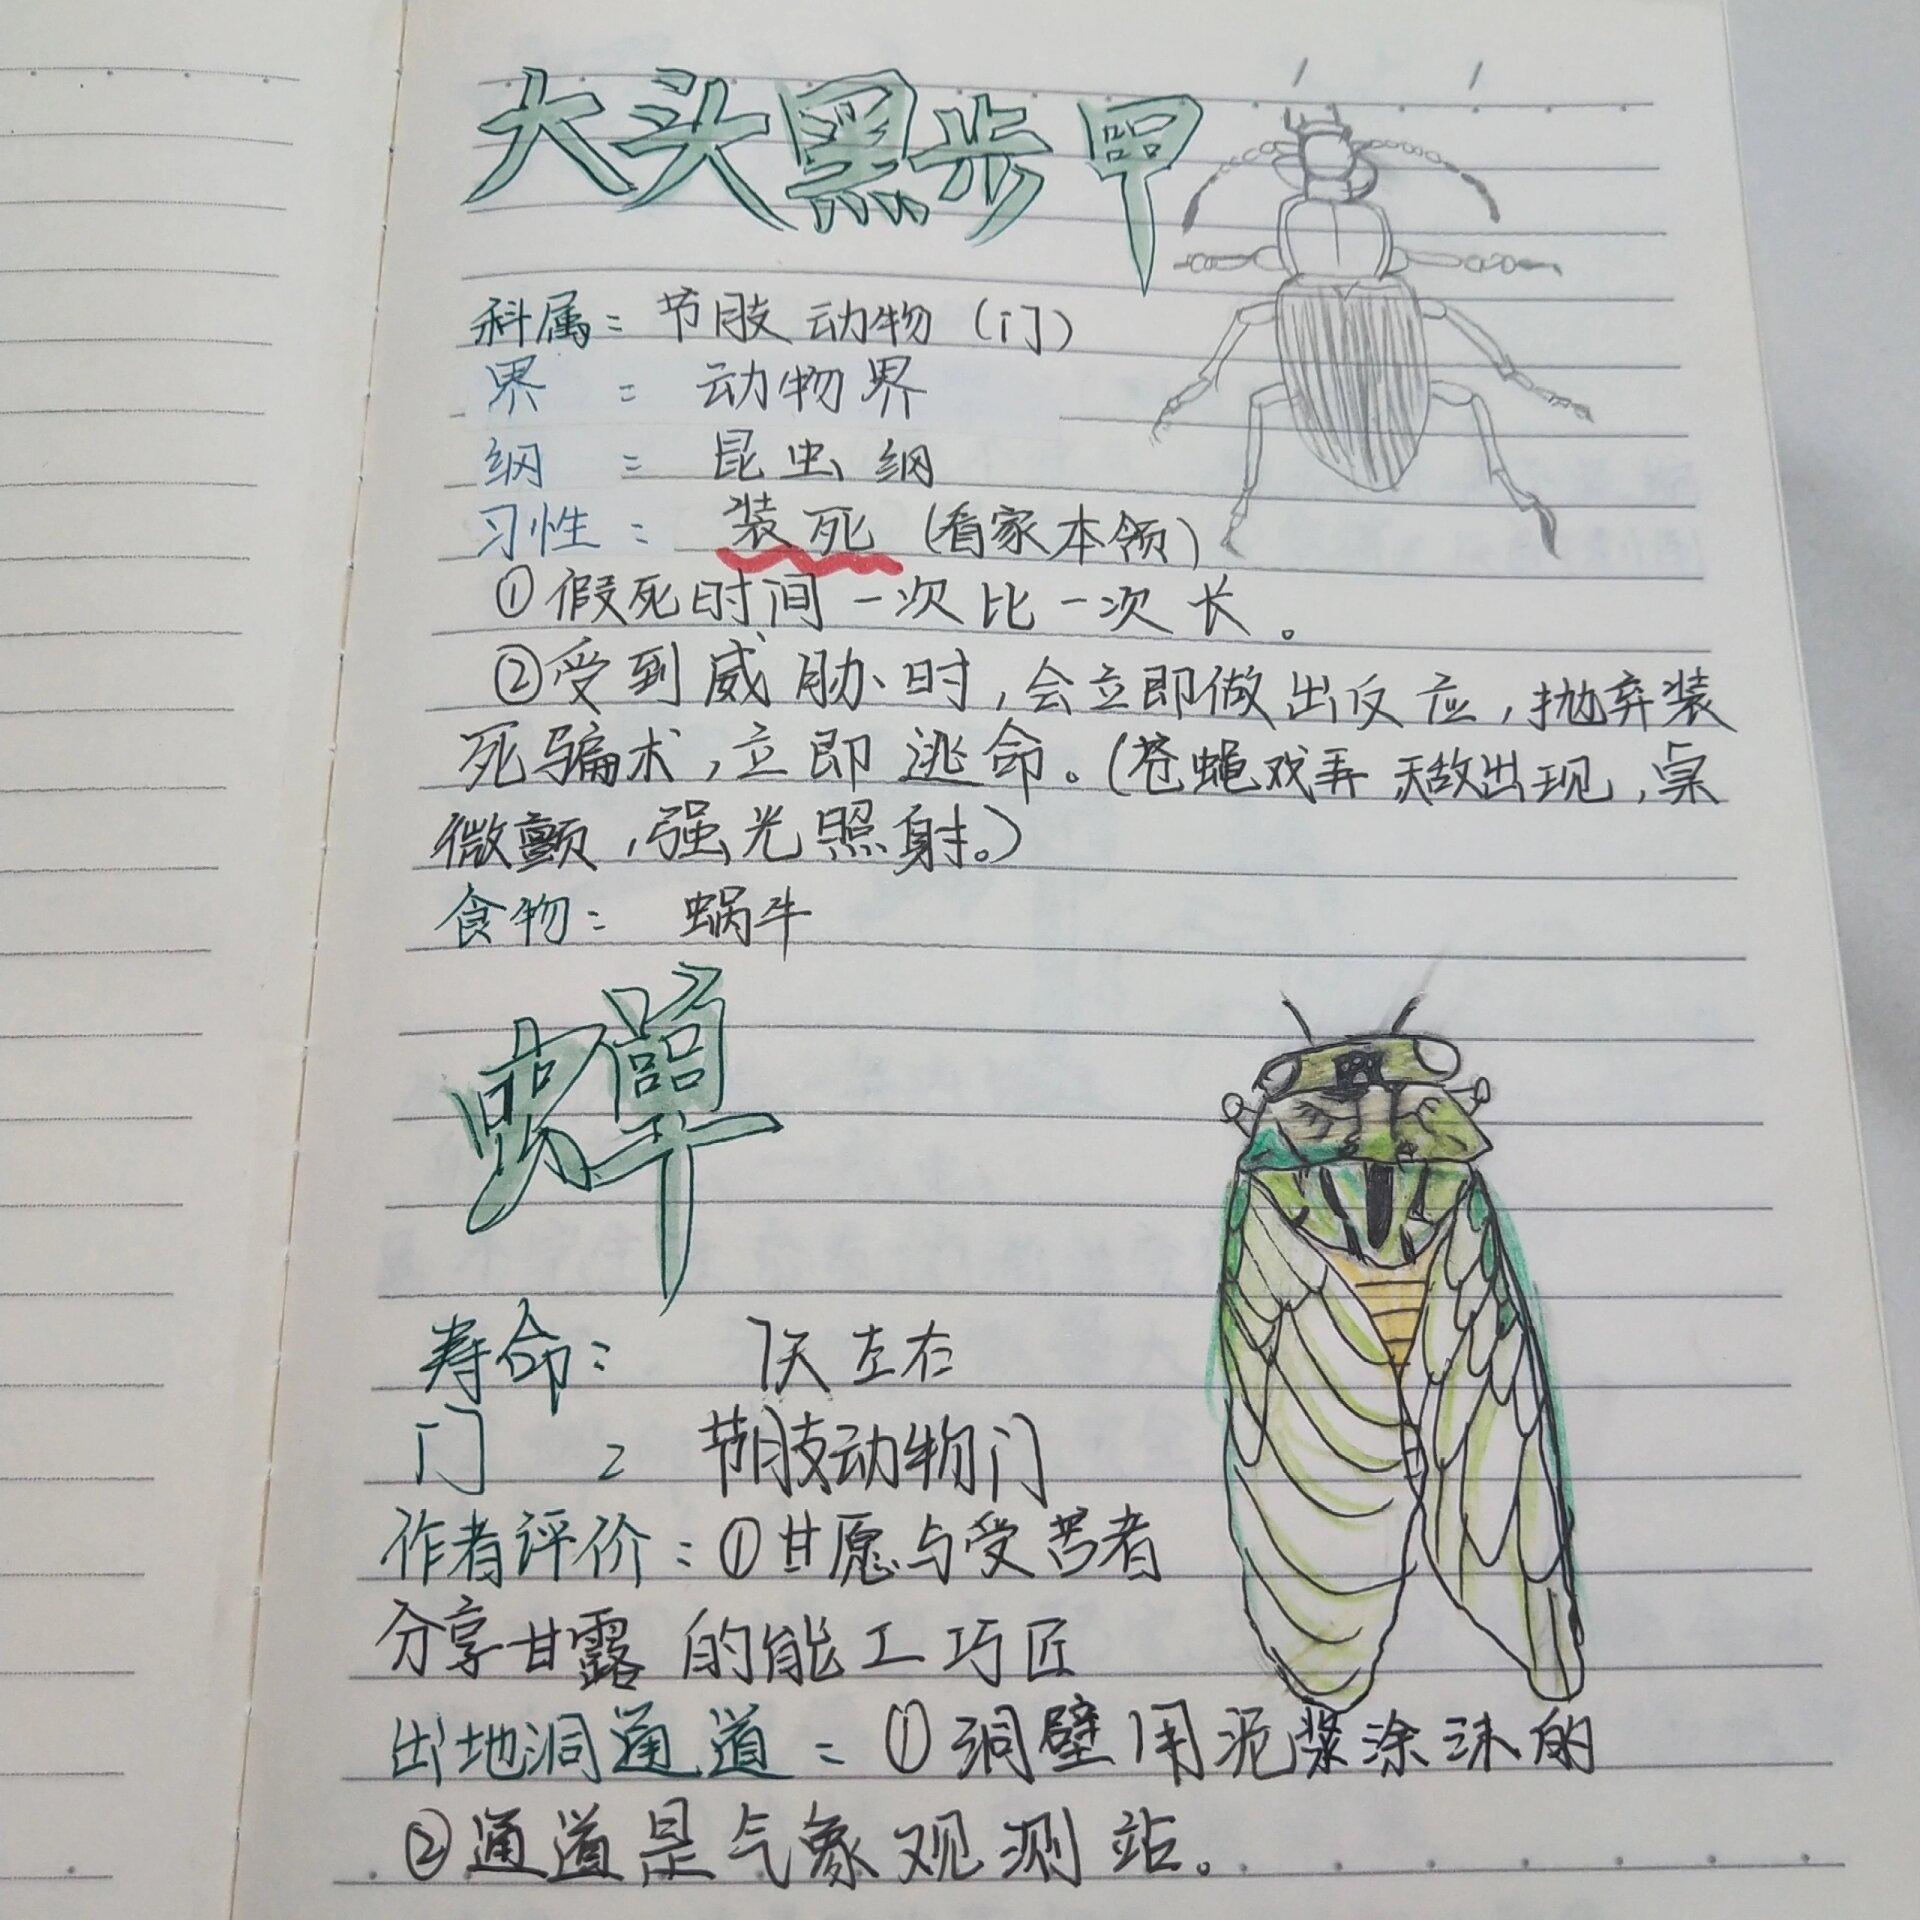 大头黑步甲
科属：节肢动物（门）
界：动物界
纲：昆虫纲
习性：装死（看家本领）
①假死时间一次比一次长。
②受到威胁时，会立即做出反应，抛弃装
死骗术，立即逃命。（苍蝇戏弄，天敌出现，桌
微颤，强光照射。）
食物：蜗牛
蝉
寿命：7天左右
门：节肢动物门
作者评价：①甘愿与受苦者
分享甘露的能工巧匠
出地洞通道：①洞壁用泥浆涂沫的
②通道是气象观测站。